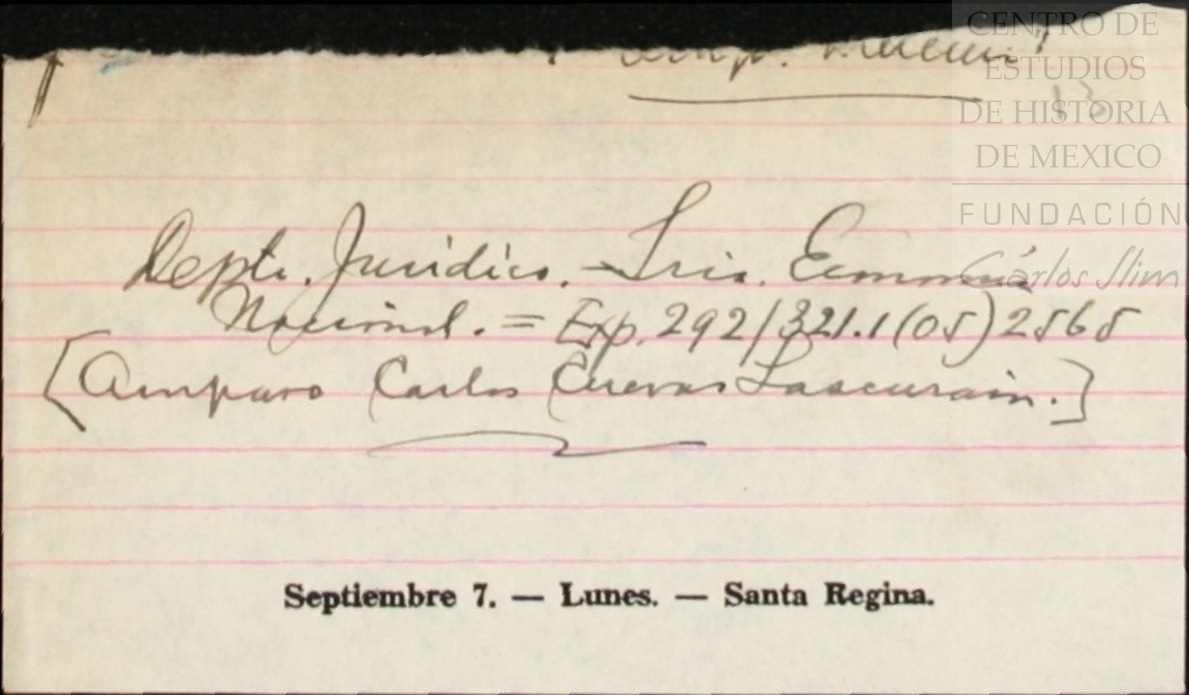 CENTRO DE
ESTUDIOS
DE HISTORIA
DE MEXICO
FUNDACIÓN
Carlos Slim
13
Depto. Jurídico. - Sria. Economía
Nacional. = Exp. 292/321.1(05)2565
[Amparo Carlos Cuevas Lascurain.]
Septiembre 7. — Lunes. — Santa Regina.